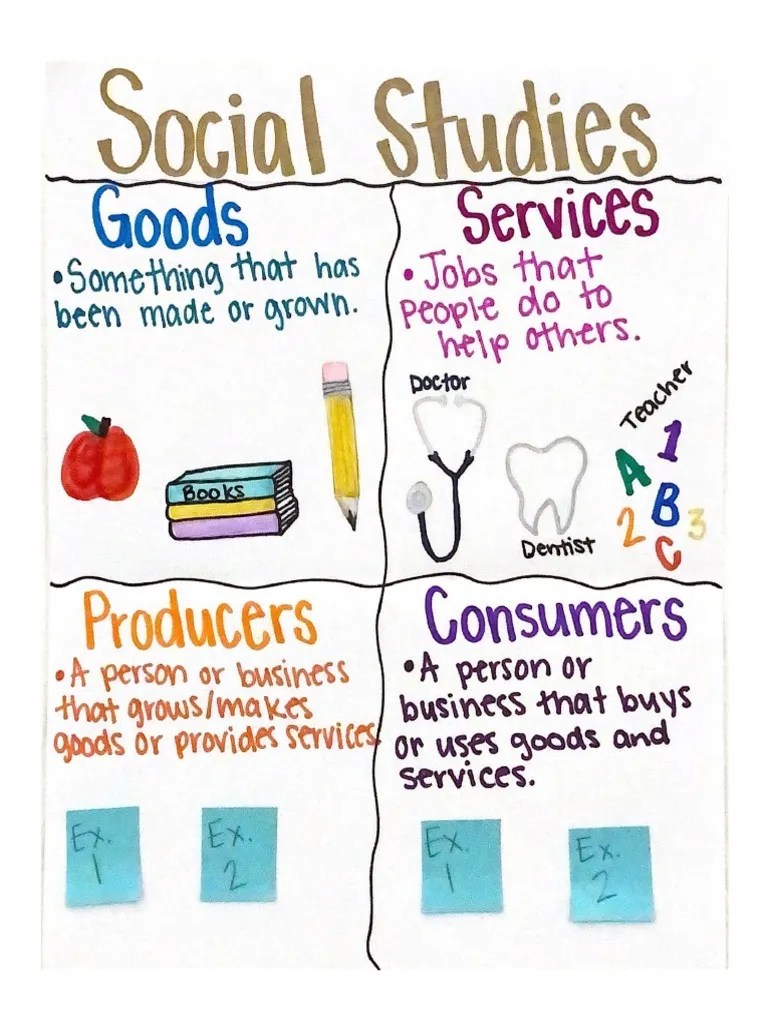 Social Studies
Goods
•Something that has
been made or grown.
Books
Services
•Jobs that
people do to
help others.
Doctor
Dentist
Teacher
A 1
B
2 3
C
Producers
•A person or business
that grows/makes
goods or provides services.
Ex.
1
Ex.
2
Consumers
•A person or
business that buys
or uses goods and
services.
Ex.
1
Ex.
2